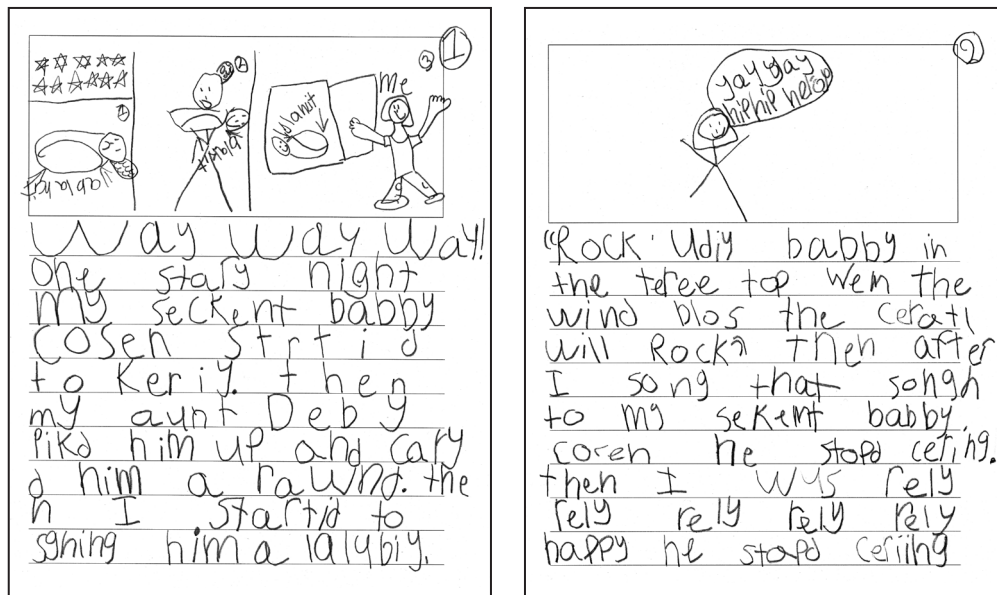 1
2
3
1
me
blankit
blankit
ablankit
Way Way Way!
One stary night
my seckent babby
cosen strtid
to Keriy. then
my aunt Deby
pikd him up and cary
d him a rawnd. the
n I startid to
sghing him a lalybiy.
2
yay yay
hiphip heroo
"Rock Udiy babby in
the teree top wem the
wind blos the ceratl
will Rock" then after
I song that songh
to my sekemt babby
coren he stopd cering.
then I wus rely
rely rely rely rely
happy he stopd ceriing